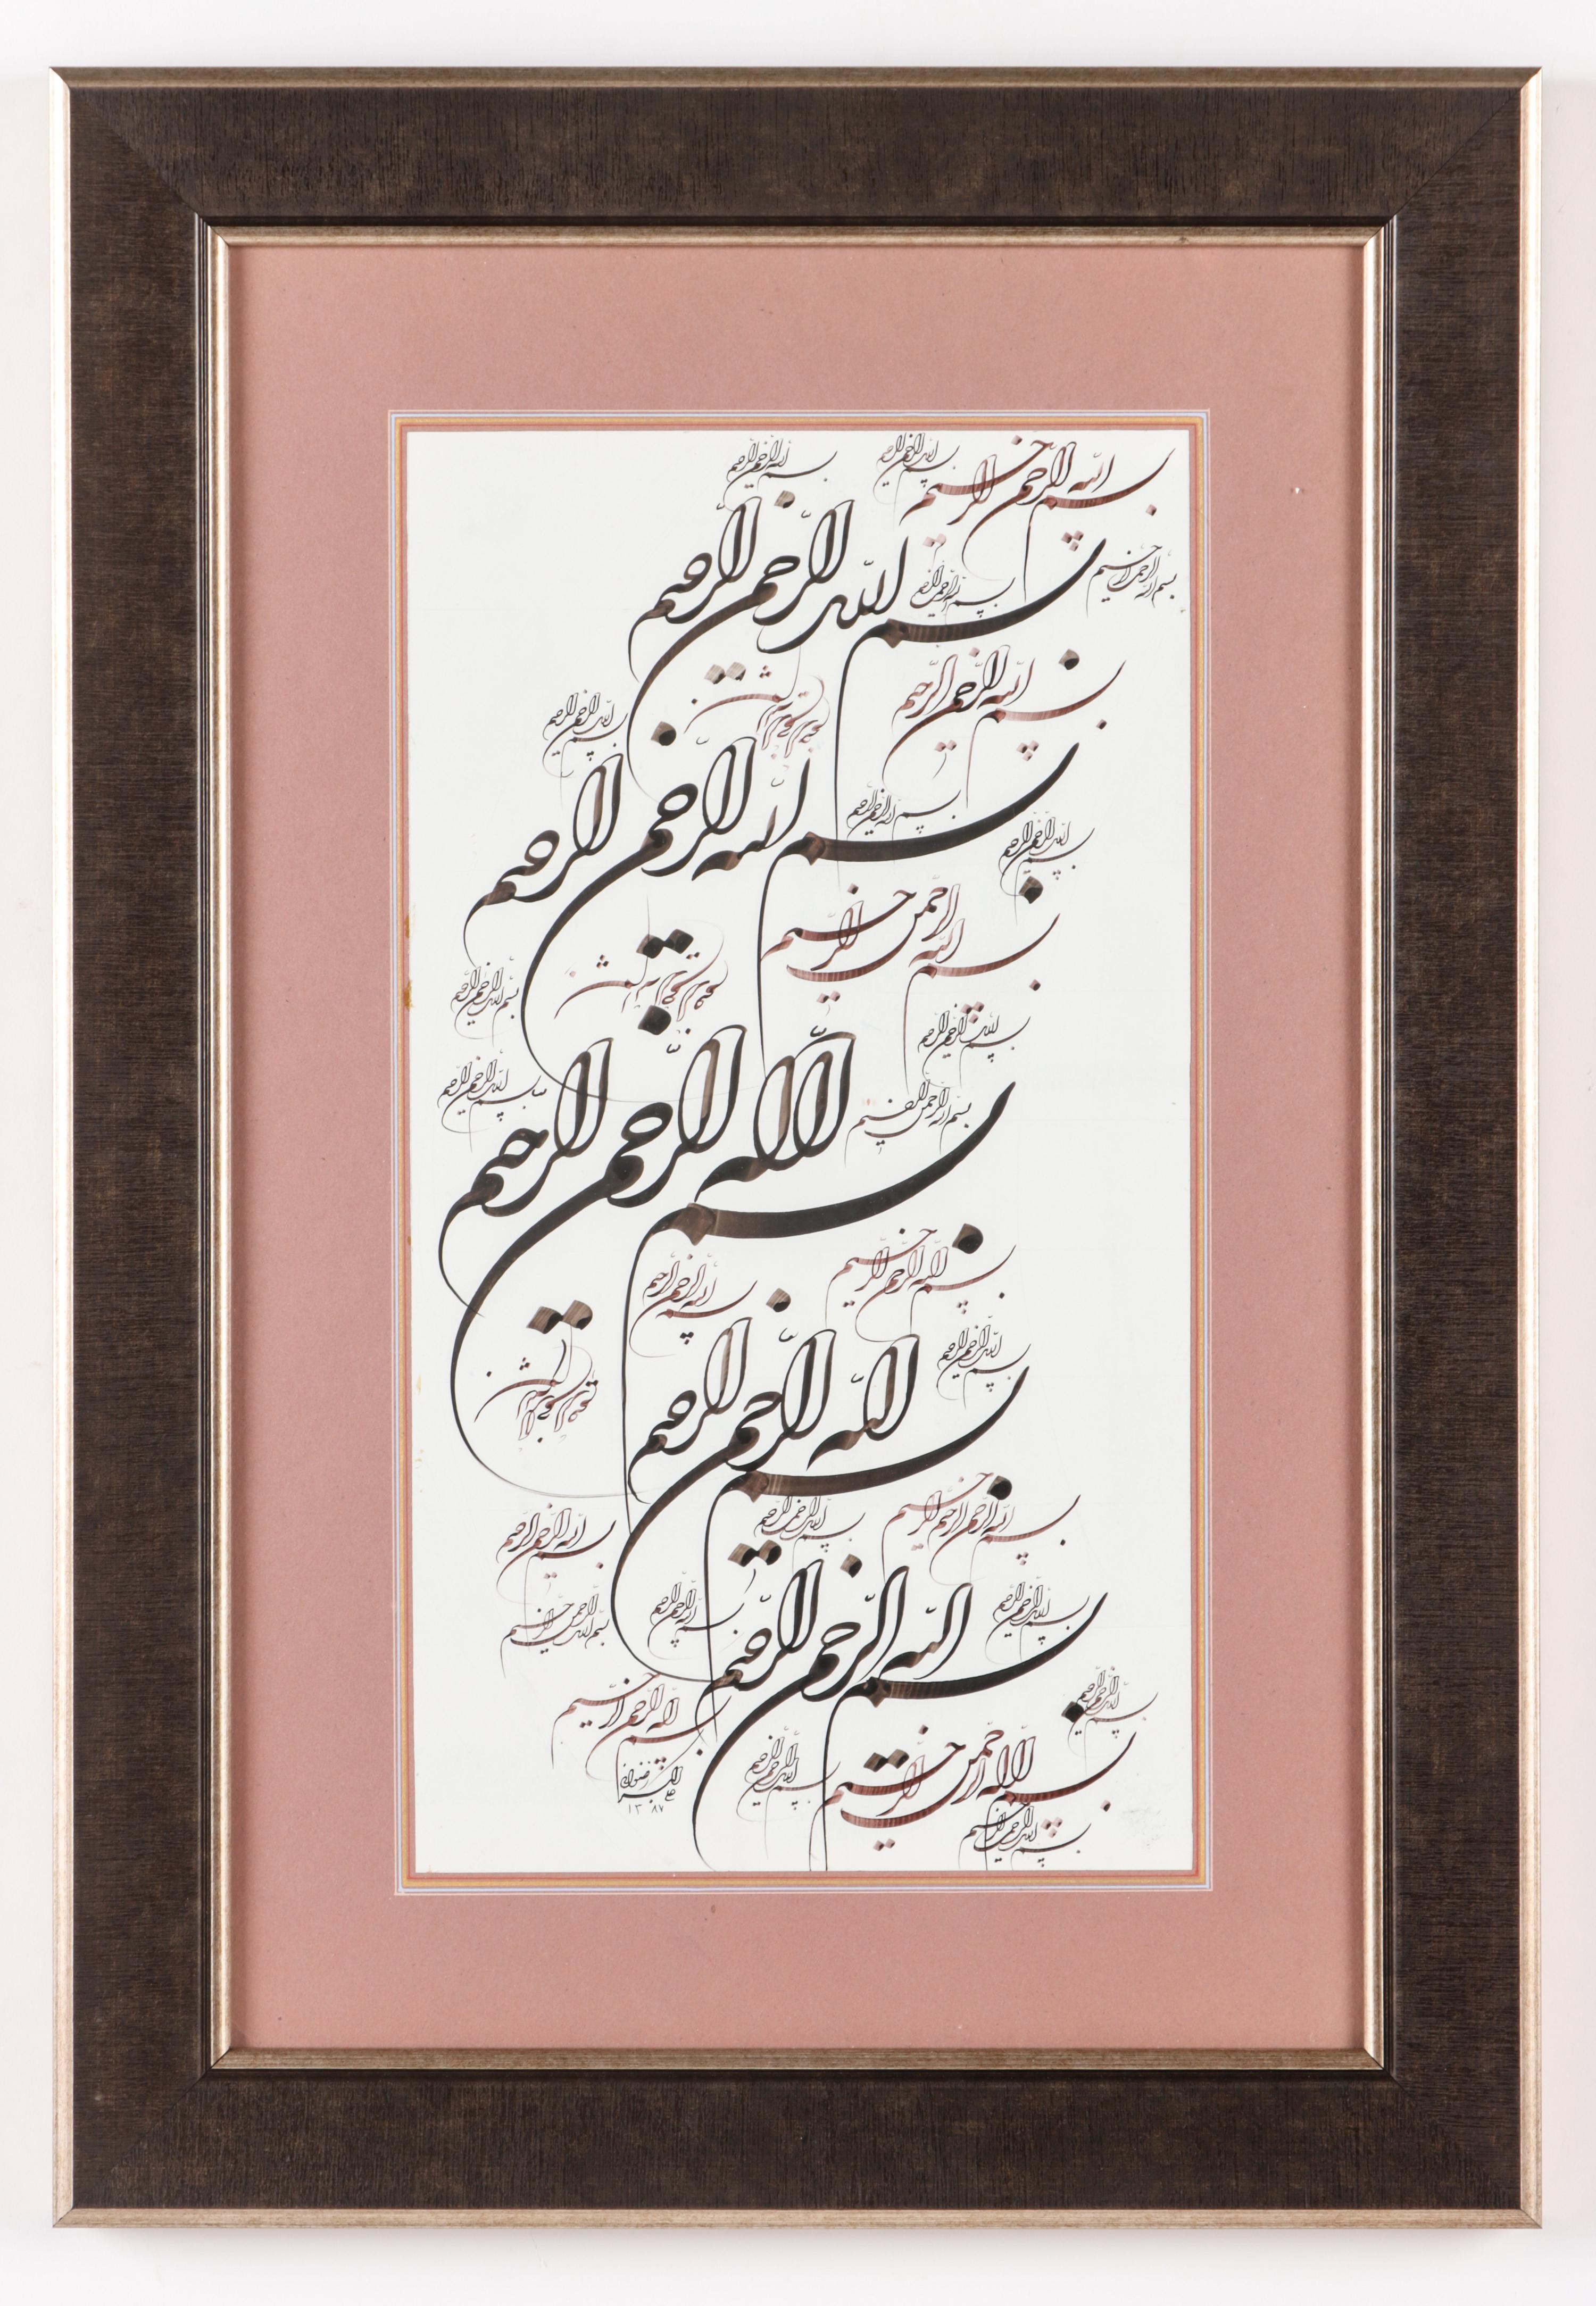 بسم الله الرحمن الرحیم
بسم الله الرحمن الرحیم
بسم الله الرحمن الرحیم
بسم الله الرحمن الرحیم
بسم الله الرحمن الرحیم
بسم الله الرحمن الرحیم
بسم الله الرحمن الرحیم
بسم الله الرحمن الرحیم
بسم الله الرحمن الرحیم
بسم الله الرحمن الرحیم
بسم الله الرحمن الرحیم
بسم الله الرحمن الرحیم
بسم الله الرحمن الرحیم
بسم الله الرحمن الرحیم
بسم الله الرحمن الرحیم
بسم الله الرحمن الرحیم
بسم الله الرحمن الرحیم
بسم الله الرحمن الرحیم
بسم الله الرحمن الرحیم
بسم الله الرحمن الرحیم
بسم الله الرحمن الرحیم
بسم الله الرحمن الرحیم
بسم الله الرحمن الرحیم
بسم الله الرحمن الرحیم
بسم الله الرحمن الرحیم
بسم الله الرحمن الرحیم
بسم الله الرحمن الرحیم
بسم الله الرحمن الرحیم
بسم الله الرحمن الرحیم
بسم الله الرحمن الرحیم
بسم الله الرحمن الرحیم
علی اکبر رضوانی
۱۳۸۷
بسم الله الرحمن الرحیم